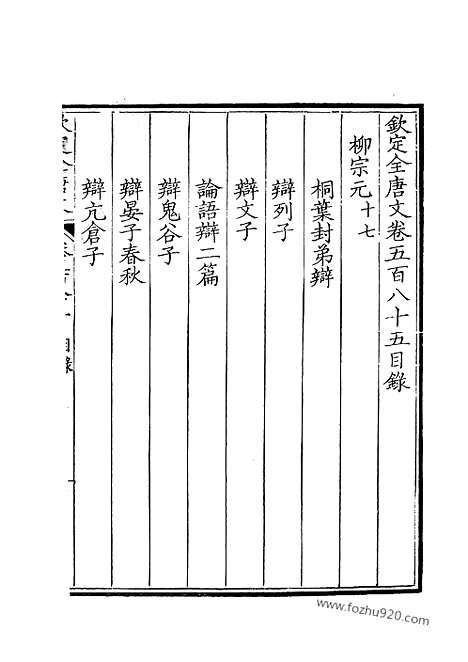 欽定全唐文卷五百八十五目錄
柳宗元十七
桐葉封弟辯
辯列子
辯文子
論語辯二篇
辯鬼谷子
辯晏子春秋
辯亢倉子
目錄
www.fozhu920.com